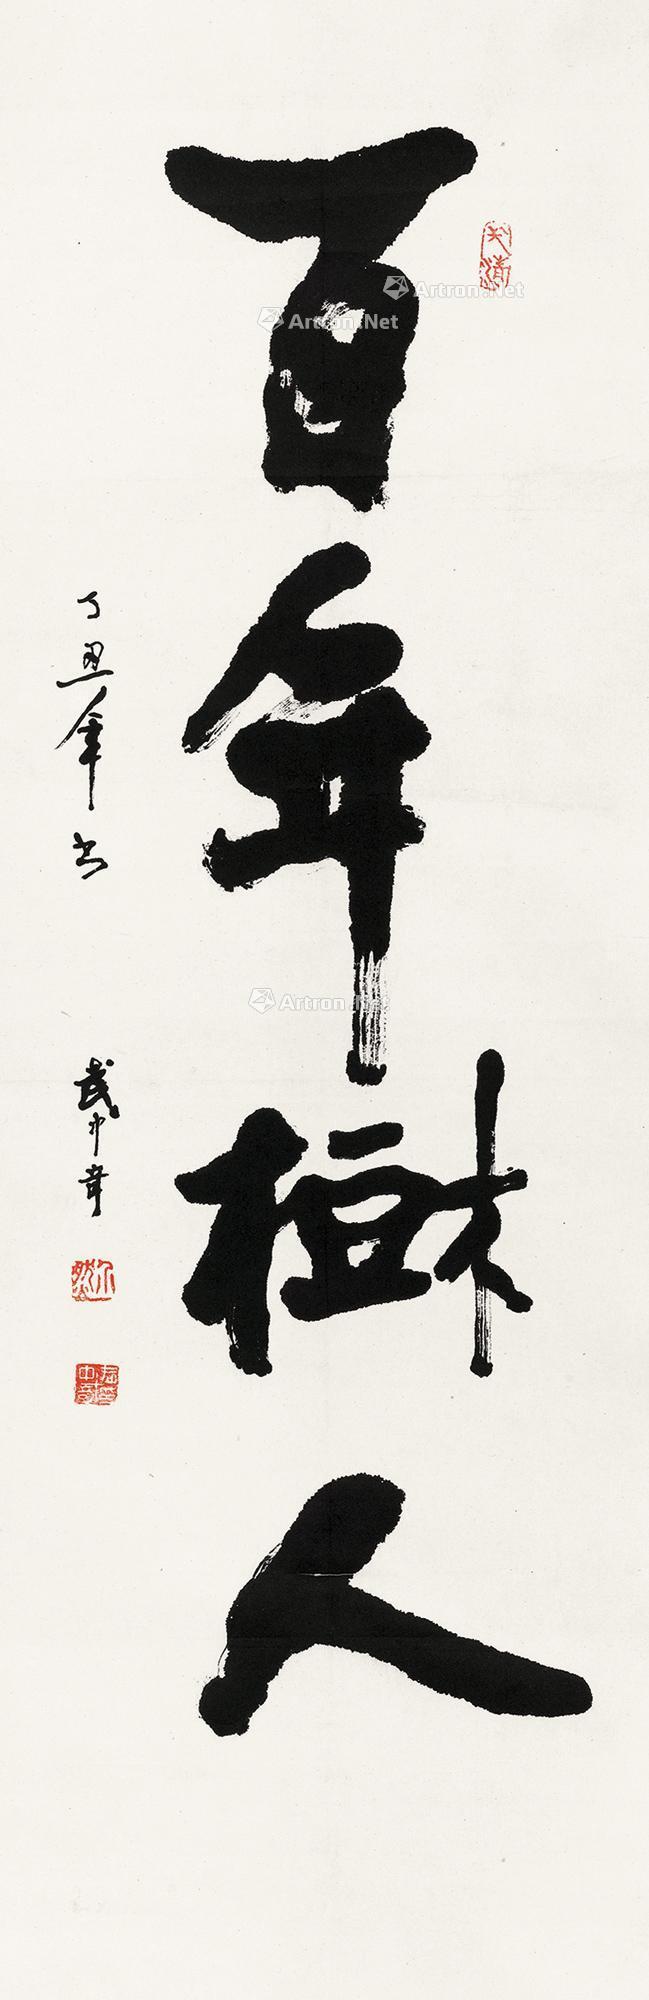 百年樹人
丁丑年书
武中奇
Artron.Net
Artron.Net
Artron.Net